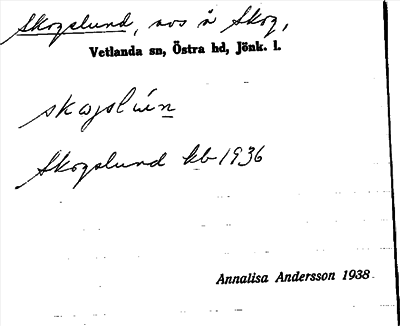 Skogslund, avs å Skog,
Vetlanda sn, Östra hd, Jönk. l.
Skogslund kb 1936
Annalisa Andersson 1938.